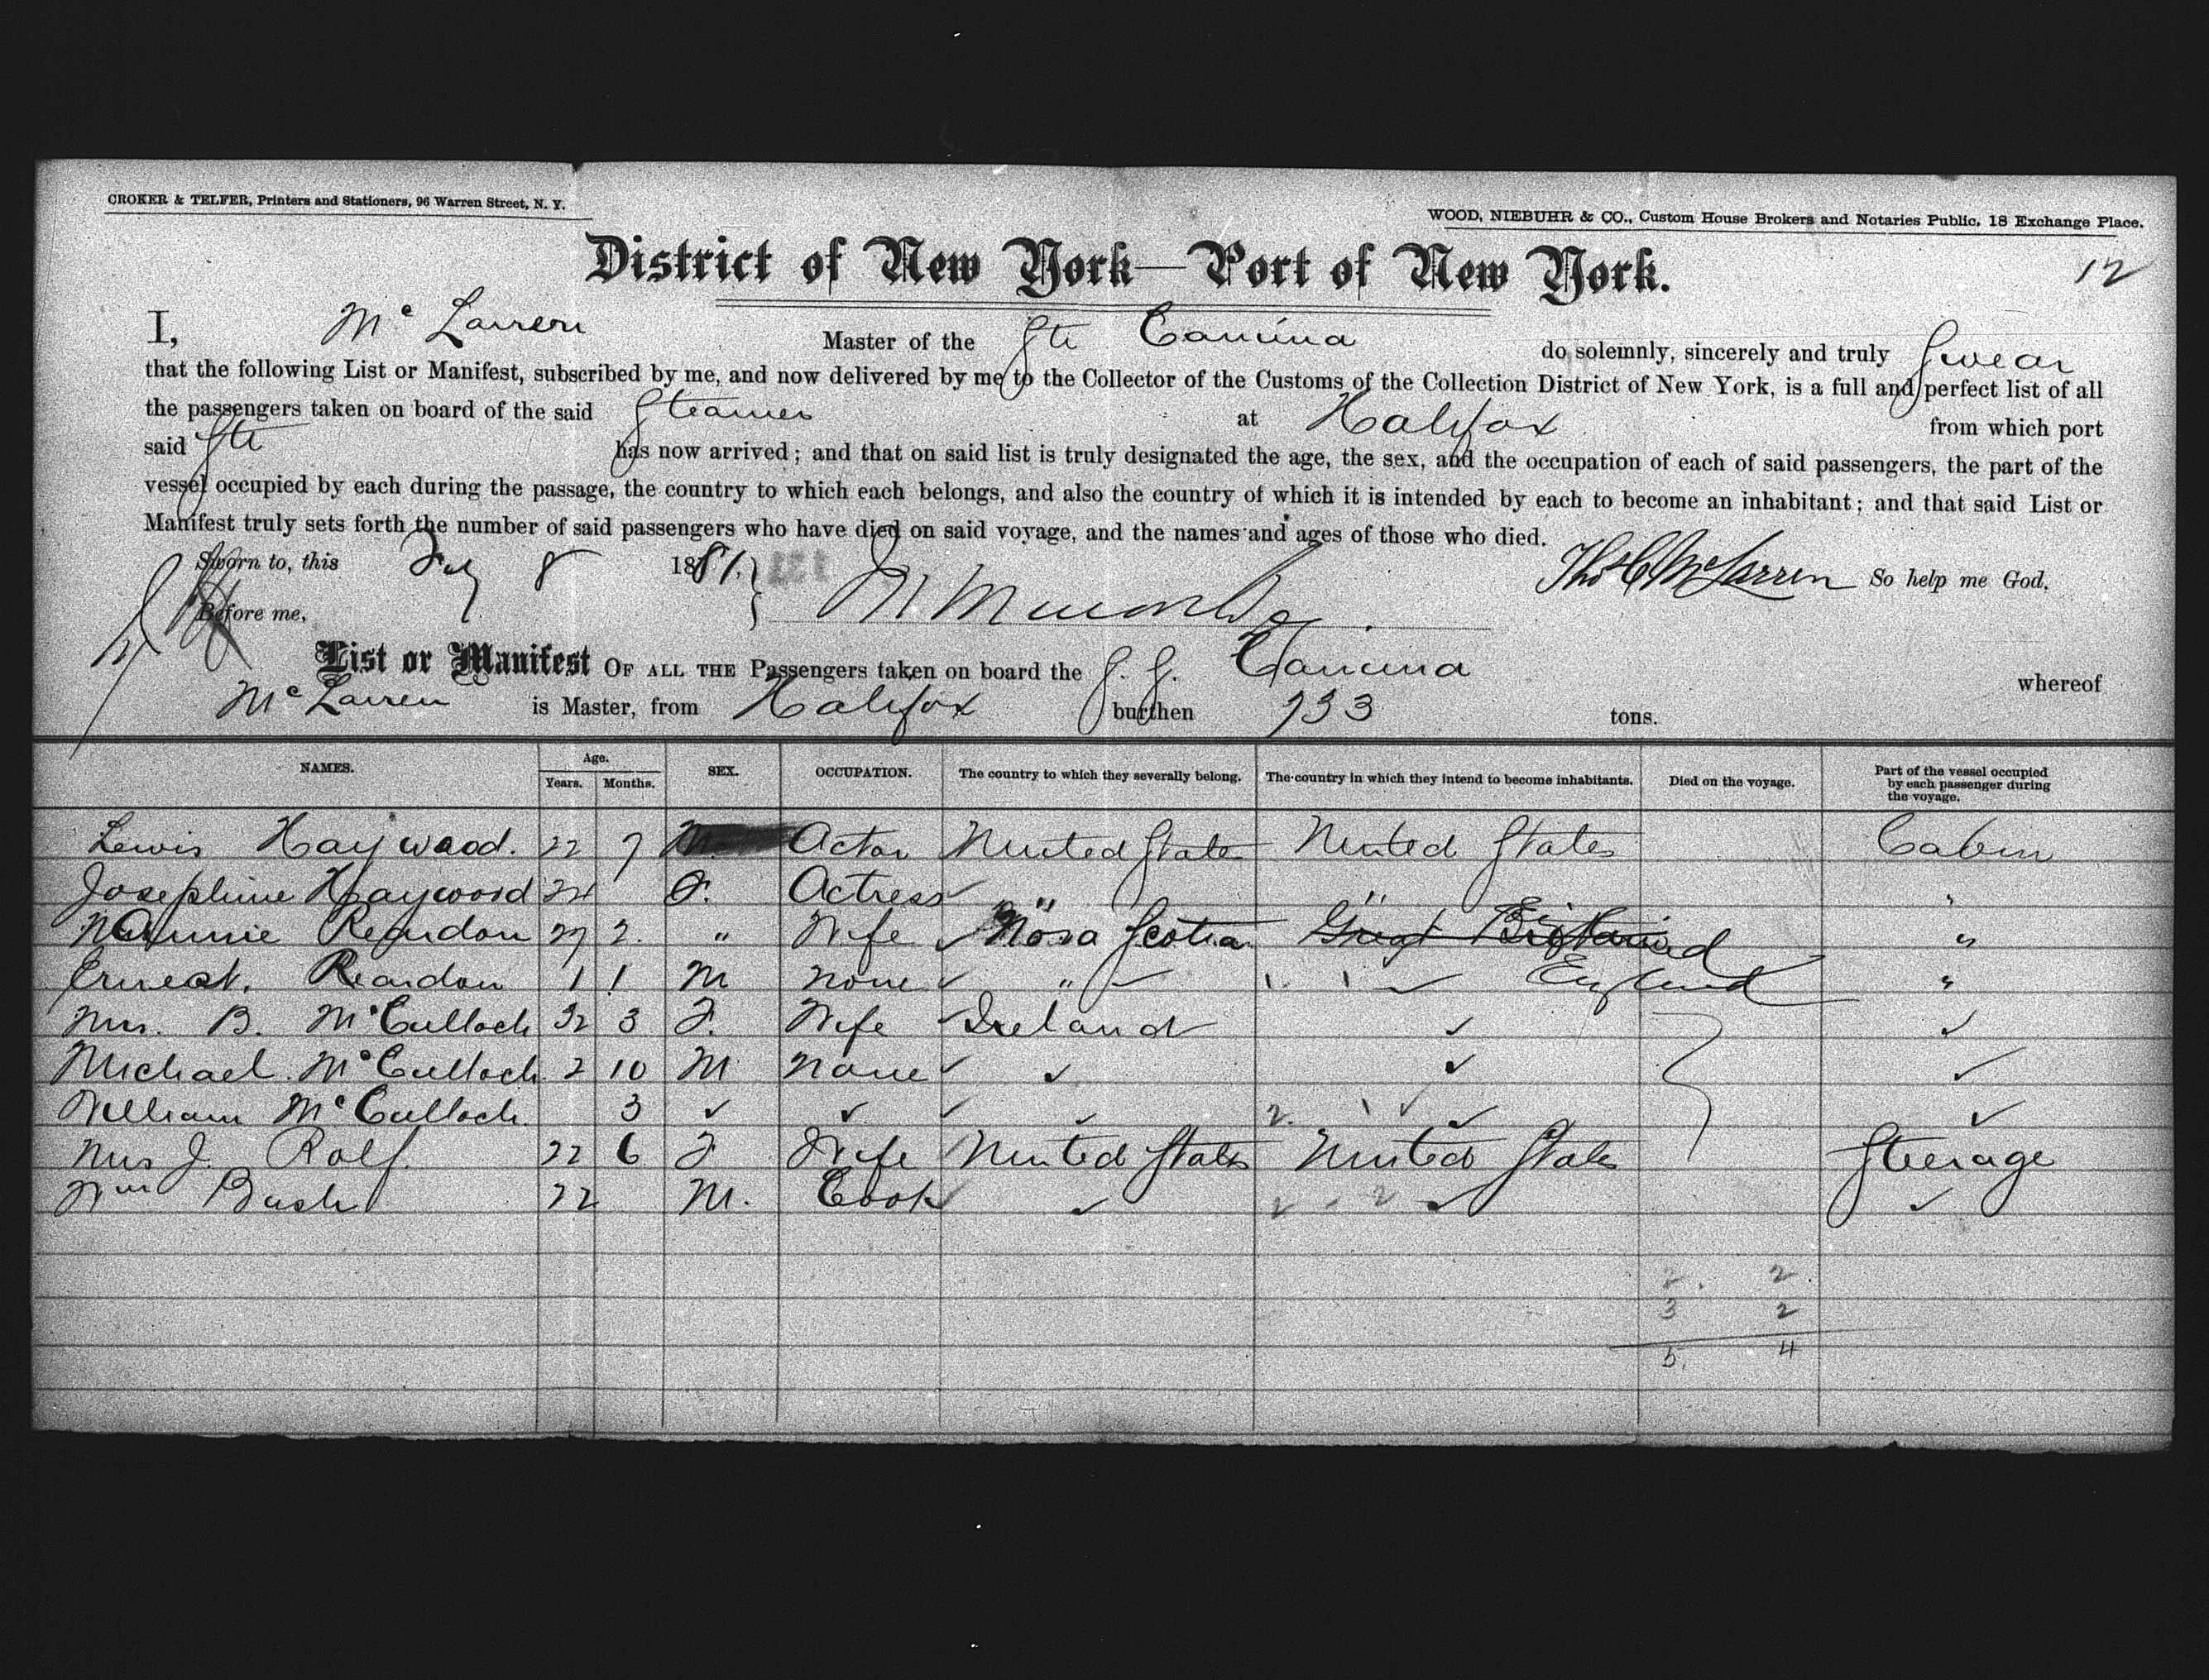 CROKER & TELFER, Printers and Stationers, 96 Warren Street, N. Y.
WOOD, NIEBUHR & CO., Custom House Brokers and Notaries Public, 18 Exchange Place.
District of New York—Port of New York.
12
I, Mc Larren Master of the Str Camina do solemnly, sincerely and truly Swear
that the following List or Manifest, subscribed by me, and now delivered by me to the Collector of the Customs of the Collection District of New York, is a full and perfect list of all
the passengers taken on board of the said Steamer at Halifax from which port
said Str has now arrived; and that on said list is truly designated the age, the sex, and the occupation of each of said passengers, the part of the
vessel occupied by each during the passage, the country to which each belongs, and also the country of which it is intended by each to become an inhabitant; and that said List or
Manifest truly sets forth the number of said passengers who have died on said voyage, and the names and ages of those who died.
Sworn to, this 8 1881. Thos C McLarren So help me God.
Before me,
List or Manifest OF ALL THE Passengers taken on board the S. S. Camina whereof
Mc Larren is Master, from Halifax burthen 933 tons.
NAMES. Age. Years. Months. SEX. OCCUPATION. The country to which they severally belong. The country in which they intend to become inhabitants. Died on the voyage. Part of the vessel occupied by each passenger during the voyage.
Lewis Haywood. 22 7 M Actor United States United States Cabin
Josephine Haywood 24 F. Actress " " "
Nannie Reardon 27 2. " Wife Nova Scotia Great Britain "
Ernest. Reardon 1 1 M None " England "
Mrs. B. McCulloch 32 3 F. Wife Ireland ✓ ✓
Michael McCulloch 2 10 M None ✓ ✓ ✓
William McCulloch. 3 ✓ ✓ ✓ ✓ ✓
Mrs J. Rolf. 22 6 F Wife United States United States Steerage
Wm Bush 22 M. Cook ✓ ✓ ✓
2. 2.
3 2
5. 4